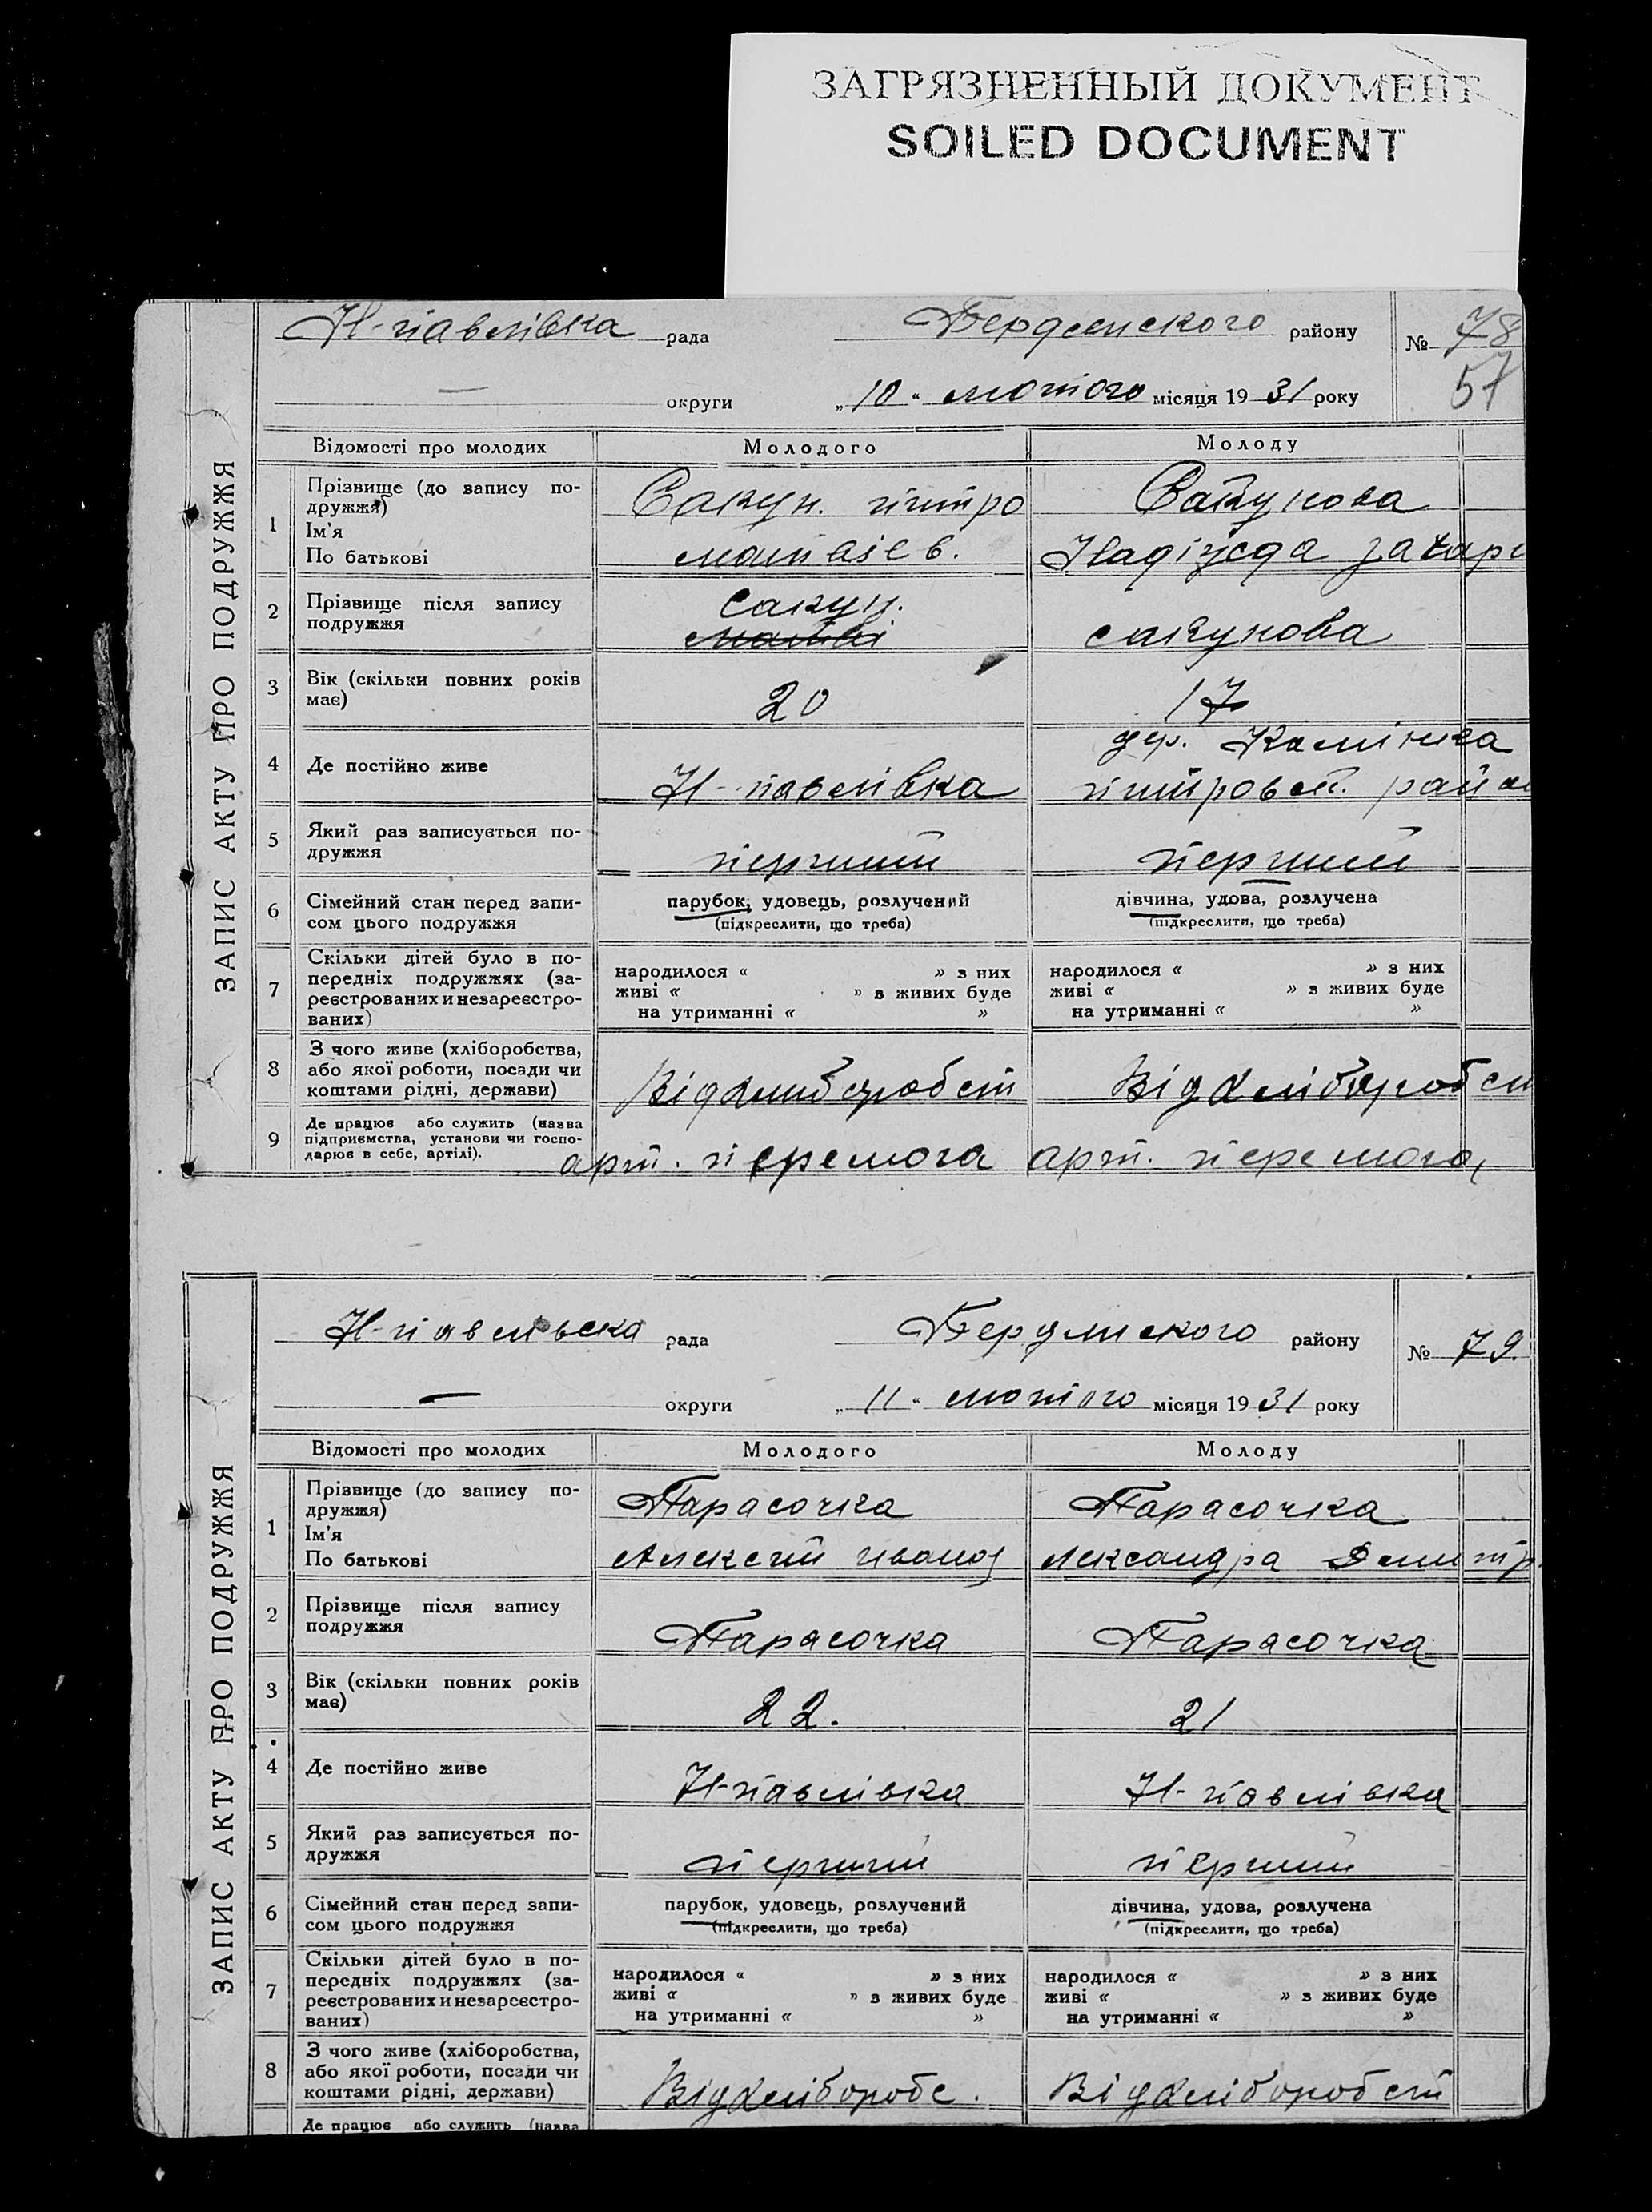 ЗАГРЯЗНЕННЫЙ ДОКУМЕНТ
SOILED DOCUMENT
ЗАПИС АКТУ ПРО ПОДРУЖЖЯ
Н-павлівка рада Бердянского району № 78
57
— округи „10“ лютого місяця 1931 року
Відомості про молодих Молодого Молоду
1 Прізвище (до запису по-
дружжя)
Ім'я
По батькові
Сакун. пітро
матвієв.
Сакунова
Надіужда захар
2 Прізвище після запису
подружжя
Сакун.
сакунова
3 Вік (скільки повних років
має)
20 17
4 Де постійно живе
Н-павлівка
дер. Камінка
пітровск. район
5 Який раз записується по-
дружжя
перший перший
6 Сімейний стан перед запи-
сом цього подружжя
парубок, удовець, розлучений
(підкреслити, що треба)
дівчина, удова, розлучена
(підкреслити, що треба)
7 Скільки дітей було в по-
передніх подружжях (за-
реєстрованих и незареєстро-
ваних)
народилося « » з них
живі « » з живих буде
на утриманні « »
народилося « » з них
живі « » з живих буде
на утриманні « »
8 З чого живе (хліборобства,
або якої роботи, посади чи
коштами рідні, держави)
Відхлиборобст Відхліборобст
9 Де працює або служить (назва
підприємства, установи чи госпо-
дарює в себе, артілі).
арт. перемога арт. перемога
ЗАПИС АКТУ ПРО ПОДРУЖЖЯ
Н-павлвьска рада Бердянского району № 79.
— округи „11“ лютого місяця 1931 року
Відомості про молодих Молодого Молоду
1 Прізвище (до запису по-
дружжя)
Ім'я
По батькові
Тарасочка
Алексей иванов
Тарасочка
лександра Демитр.
2 Прізвище після запису
подружжя
Тарасочка Тарасочка
3 Вік (скільки повних років
має)
22. 21
4 Де постійно живе
Н-павлівка Н-павлівка
5 Який раз записується по-
дружжя
перший перший
6 Сімейний стан перед запи-
сом цього подружжя
парубок, удовець, розлучений
(підкреслити, що треба)
дівчина, удова, розлучена
(підкреслити, що треба)
7 Скільки дітей було в по-
передніх подружжях (за-
реєстрованих и незареєстро-
ваних)
народилося « » з них
живі « » з живих буде
на утриманні « »
народилося « » з них
живі « » з живих буде
на утриманні « »
8 З чого живе (хліборобства,
або якої роботи, посади чи
коштами рідні, держави)
Відхліборобс. Відхліборобст
Де працює або служить (назва